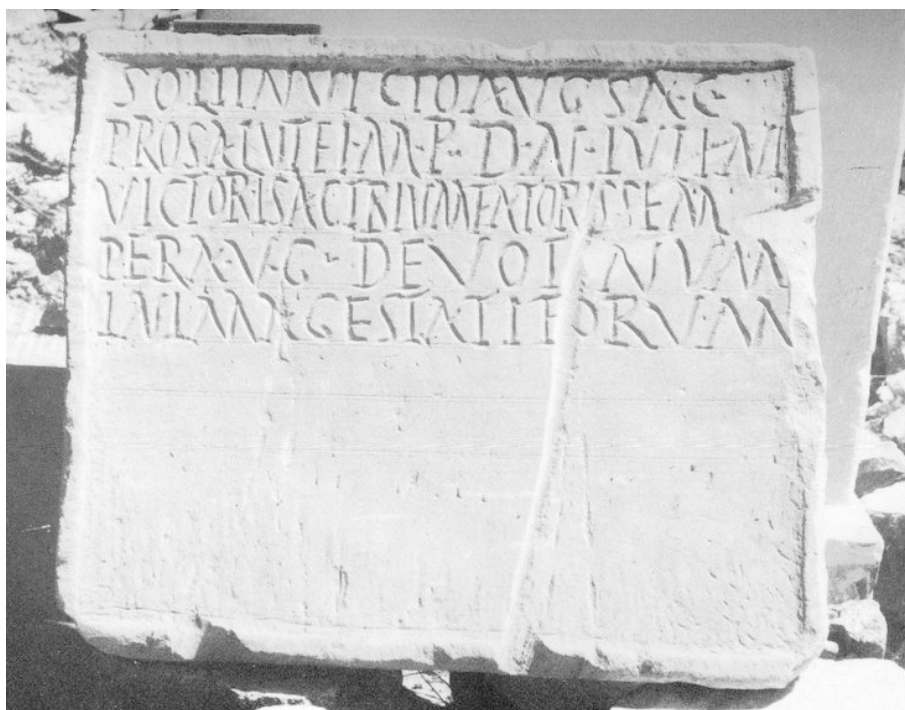 SOLI INVICTO AVG SA·C·
PRO SALVTE I·M·P·· D·N·
VICTORIS AC TRIVMFATORIS SEM
PER A·V·G· DEVOTI NVM
INI MAGESTATI EORVM